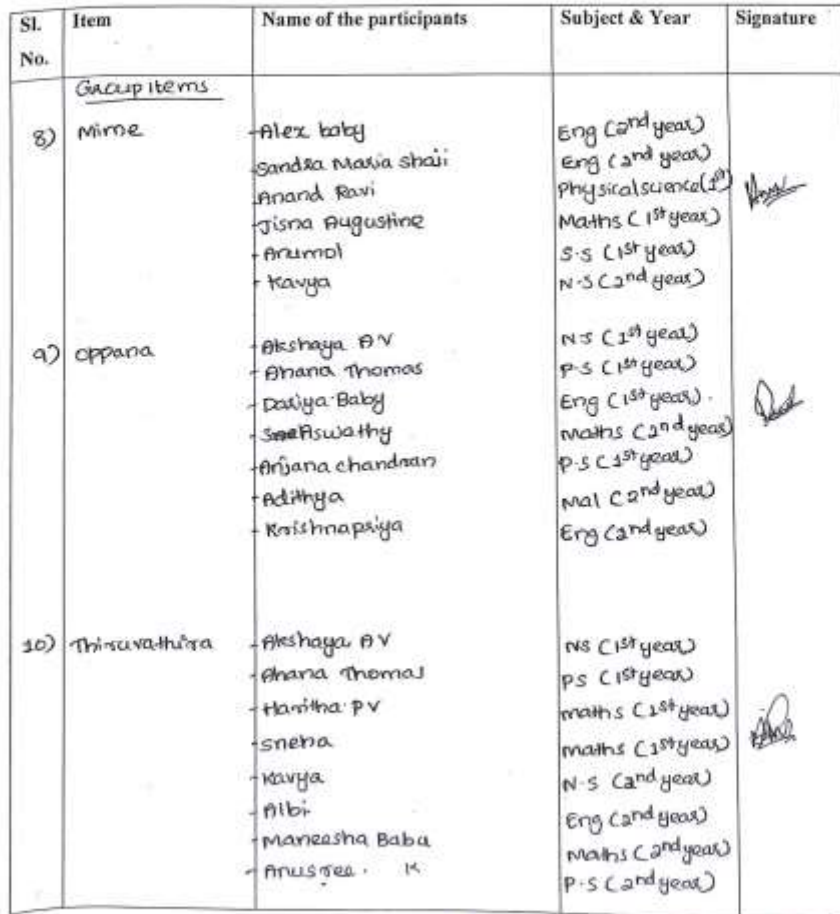 Sl. No. Item Name of the participants Subject & Year Signature
Group items
8) Mime - Alex baby Eng (2nd year)
- Sandra Maria Shaji Eng (2nd year)
- Anand Ravi Physical science (1st)
- Jisna Augustine Maths (1st year)
- Anumol S.S (1st year)
- Kavya N.S (2nd year)
9) Oppana - Akshaya AV N.S (1st year)
- Ahana Thomas P.S (1st year)
- Dariya Baby Eng (1st year).
- Aswathy Maths (2nd year)
- Anjana chandran P.S (1st year)
- Adithya Mal (2nd year)
- Krishnapriya Eng (2nd year)
10) Thiruvathira - Akshaya AV NS (1st year)
- Ahana Thomas PS (1st year)
- Haritha PV maths (1st year)
- Sneha maths (1st year)
- Kavya N.S (2nd year)
- Albi Eng (2nd year)
- Maneesha Babu Maths (2nd year)
- Anusree. K P.S (2nd year)